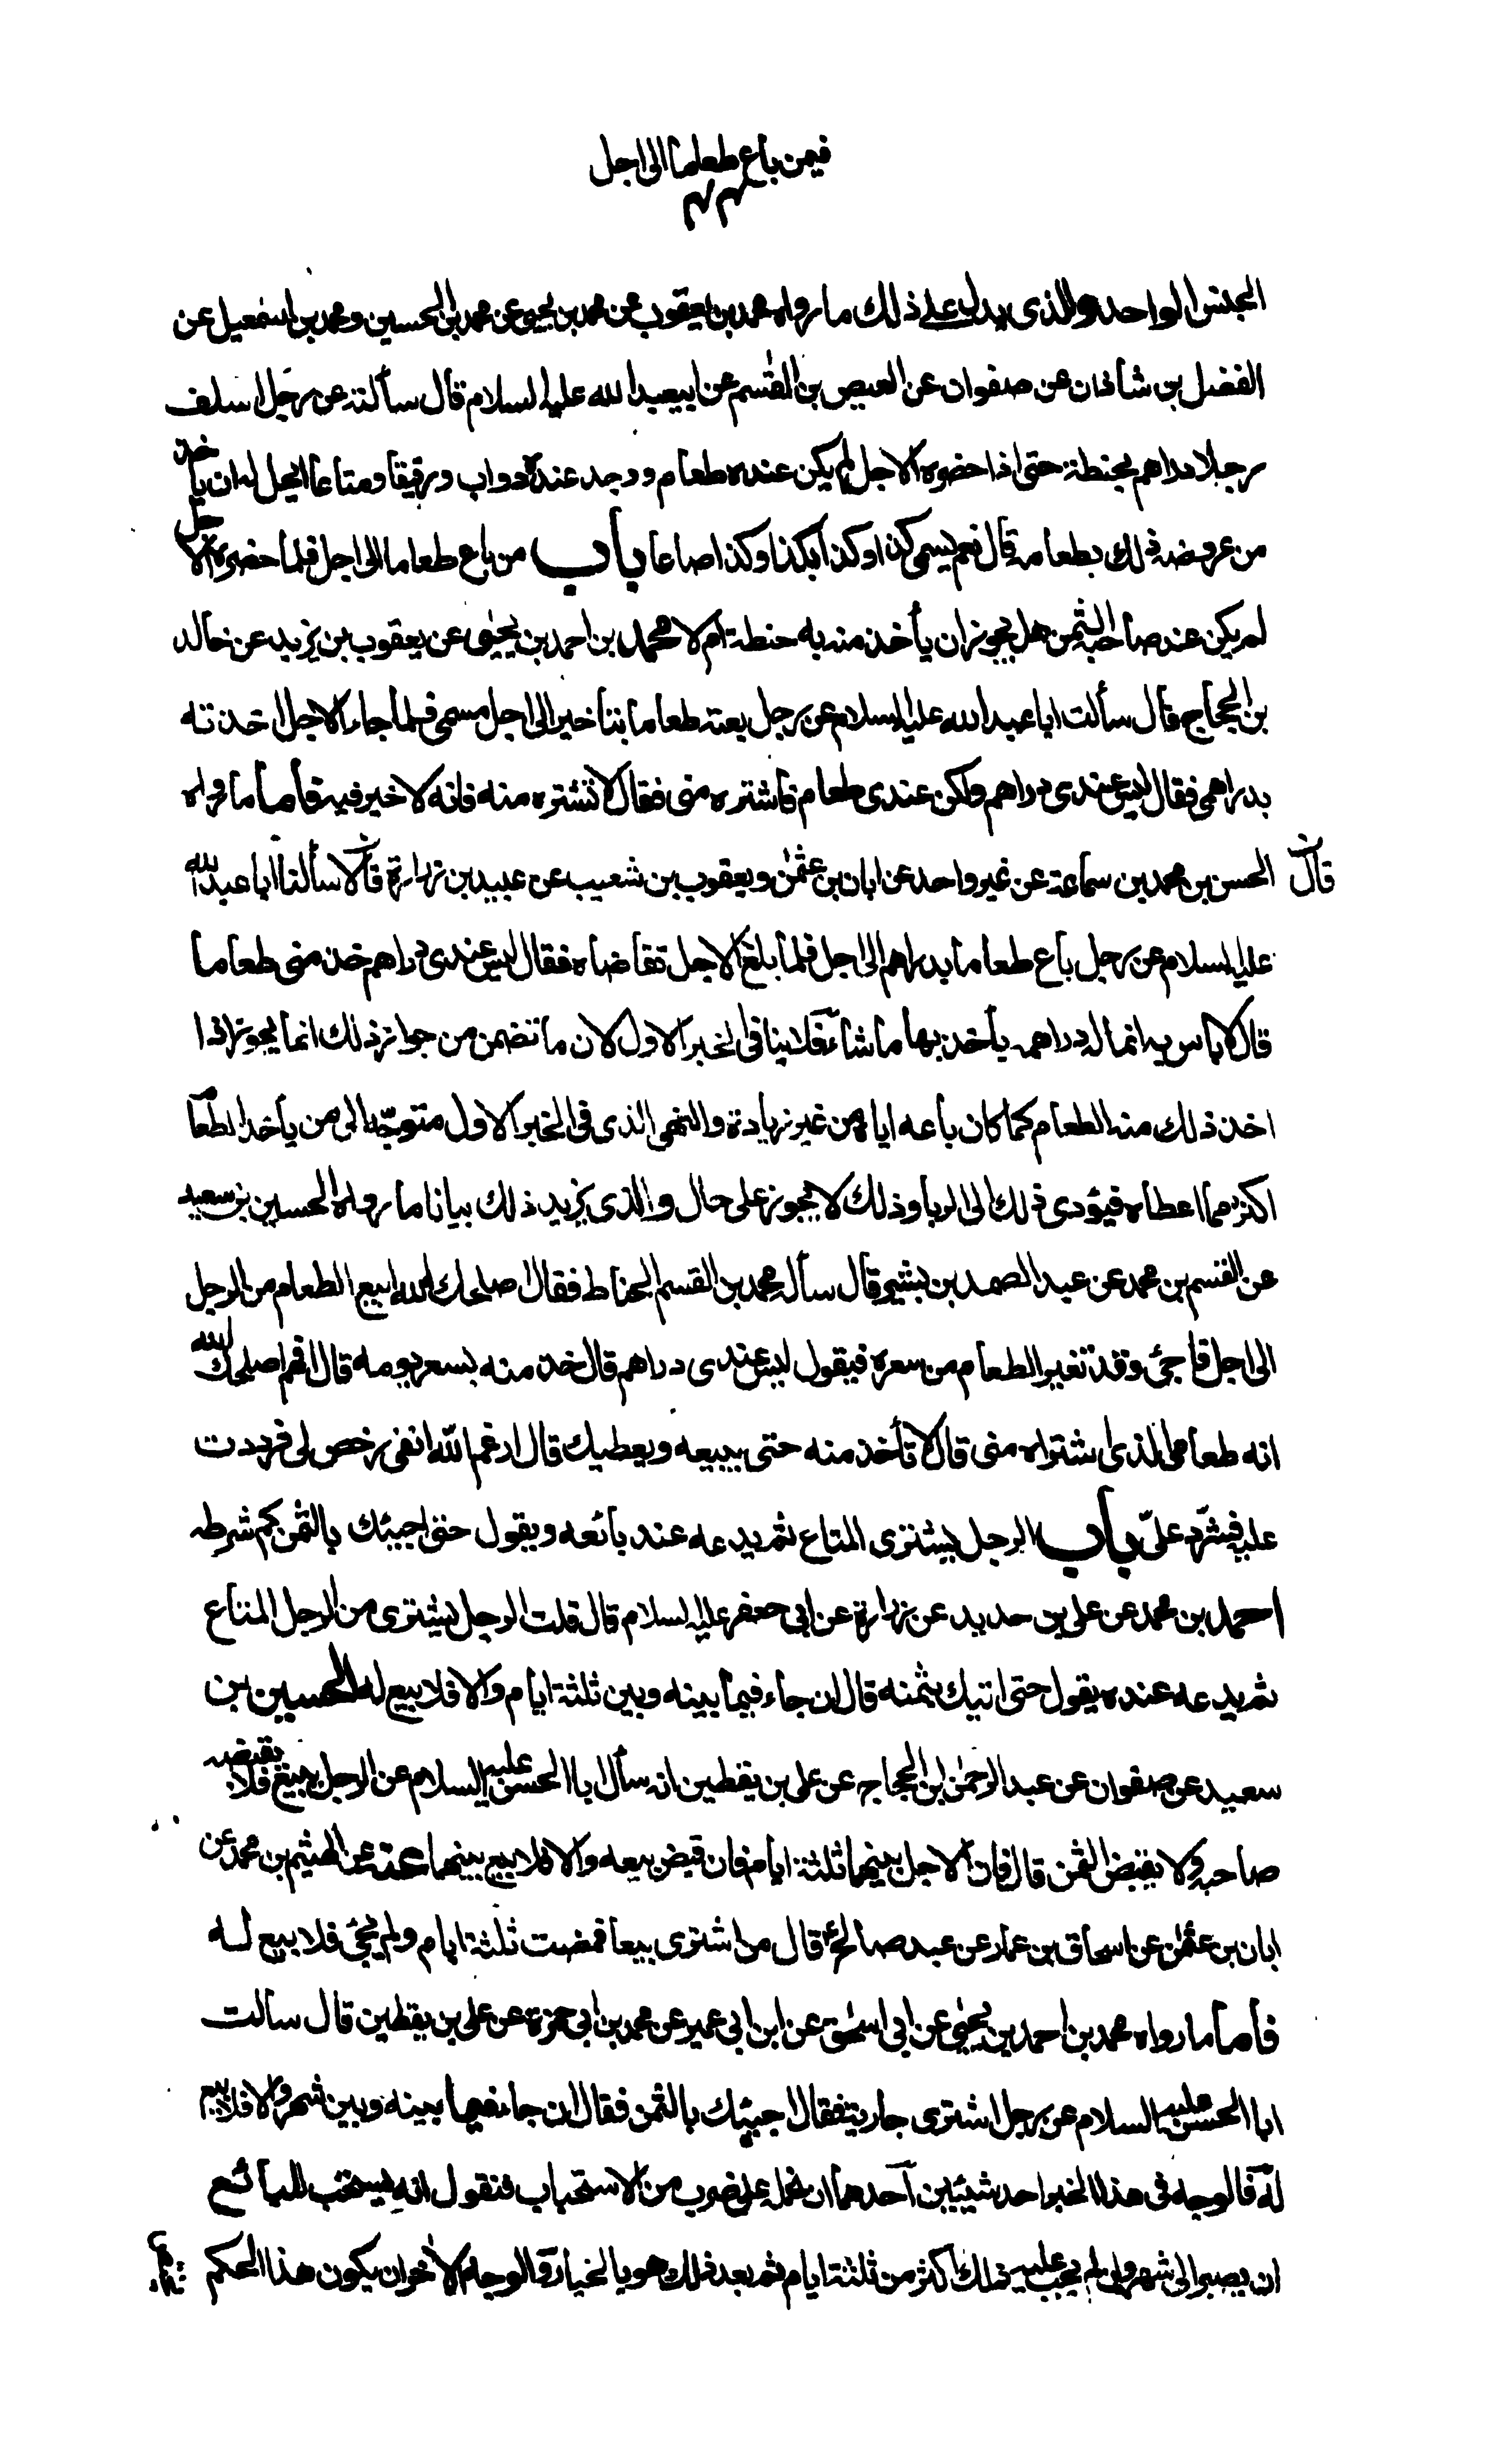 فيمن باع طعاما الى اجل
الجنس الواحد والذى يدل على ذلك ما رواه محمد بن يعقوب عن محمد بن يحيى عن محمد بن الحسين ومحمد بن اسمعيل عن
الفضل بن شاذان عن صفوان عن العيص بن القسم عن ابيعبد الله عليه السلام قال سألته عن رجل اسلف
رجلا دراهم بحنطة حتى اذا حضره الاجل لم يكن عنده طعام ووجد عنده دواب ورقيقا ومتاعا ايحل له ان ياخذ
من عروضه ذلك بطعامه قال نعم يسمى كذا وكذا بكذا وكذا صاعا باب من باع طعاما الى اجل فلما حضره الاجل
لم يكن عند صاحبه الثمن هل يجوز ان يأخذ منه به حنطة ام لا محمد بن احمد بن يحيى عن يعقوب بن يزيد عن خالد
بن الحجاج قال سألت ابا عبد الله عليه السلام عن رجل بعته طعاما بتاخير الى اجل مسمى فلما جاء الاجل اخذته
بدراهمى فقال ليس عندى دراهم ولكن عندى طعام فاشتره منى فقال لا تشتره منه فانه لا خير فيه فأما ما رواه
الحسن بن محمد بن سماعة عن غير واحد عن ابان بن عثمن ويعقوب بن شعيب عن عبيد بن زرارة قالا سألنا ابا عبد الله
قال
عليه السلام عن رجل باع طعاما بدراهم الى اجل فلما بلغ الاجل تقاضاه فقال ليس عندى دراهم خذ منى طعاما
قال لا باس به انما له دراهمه يأخذ بها ما شاء فلا ينافى الخبر الاول لان ما تضمن من جواز ذلك انما يجوز اذا
اخذ ذلك منه الطعام كما كان باعه اياه من غير زيادة والنهى الذى فى الخبر الاول متوجه الى من يأخذ الطعام
اكثر مما اعطاه فيؤدى ذلك الى الربا وذلك لا يجوز على حال والذى يزيد ذلك بيانا ما رواه الحسين بن سعيد
عن القسم بن محمد عن عبد الصمد بن بشير قال سأله محمد بن القسم الحناط فقال اصلحك الله ابيع الطعام من الرجل
الى اجل فاجئ وقد تغير الطعام من سعره فيقول ليس عندى دراهم قال خذ منه بسعر يومه قال افهم اصلحك الله
انه طعامى الذى اشتراه منى قال لا تأخذ منه حتى يبيعه ويعطيك قال ارغم الله انفى رخص لى فرددت
عليه فشدد على باب الرجل يشترى المتاع ثم يدعه عند بائعه ويقول حتى اجيئك بالثمن كم شرطه
احمد بن محمد عن على بن حديد عن زرارة عن ابى جعفر عليه السلام قال قلت الرجل يشترى من الرجل المتاع
ثم يدعه عنده يقول حتى اتيك بثمنه قال ان جاء فيما بينه وبين ثلثة ايام والا فلا بيع له الحسين بن
سعيد عن صفوان عن عبد الرحمن بن الحجاج عن على بن يقطين انه سأل ابا الحسن عليه السلام عن الرجل يبيع فلا يقبضه
صاحبه ولا يقبض الثمن قال فان الاجل بينهما ثلثة ايام فان قبض بيعه والا فلا بيع بينهما عنه عن الهيثم بن محمد عن
ابان بن عثمن عن اسحاق بن عمار عن عبد صالح ع قال من اشترى بيعا فمضت ثلثة ايام ولم يجئ فلا بيع له
فأما ما رواه محمد بن احمد بن يحيى عن ابى اسحق عن ابن ابى عمير عن محمد بن ابى حمزة عن على بن يقطين قال سالت
ابا الحسن عليه السلام عن رجل اشترى جارية فقال اجيئك بالثمن فقال ان جاء فيما بينه وبين شهر والا فلا بيع
له فالوجه فى هذا الخبر احد شيئين احدهما ان نحمله على ضرب من الاستحباب فنقول انه يستحب للبائع
ان يصبر الى شهر وان لم يجب عليه ذلك اكثر من ثلثة ايام ثم بعد ذلك هو بالخيار والوجه الاخر ان يكون هذا الحكم